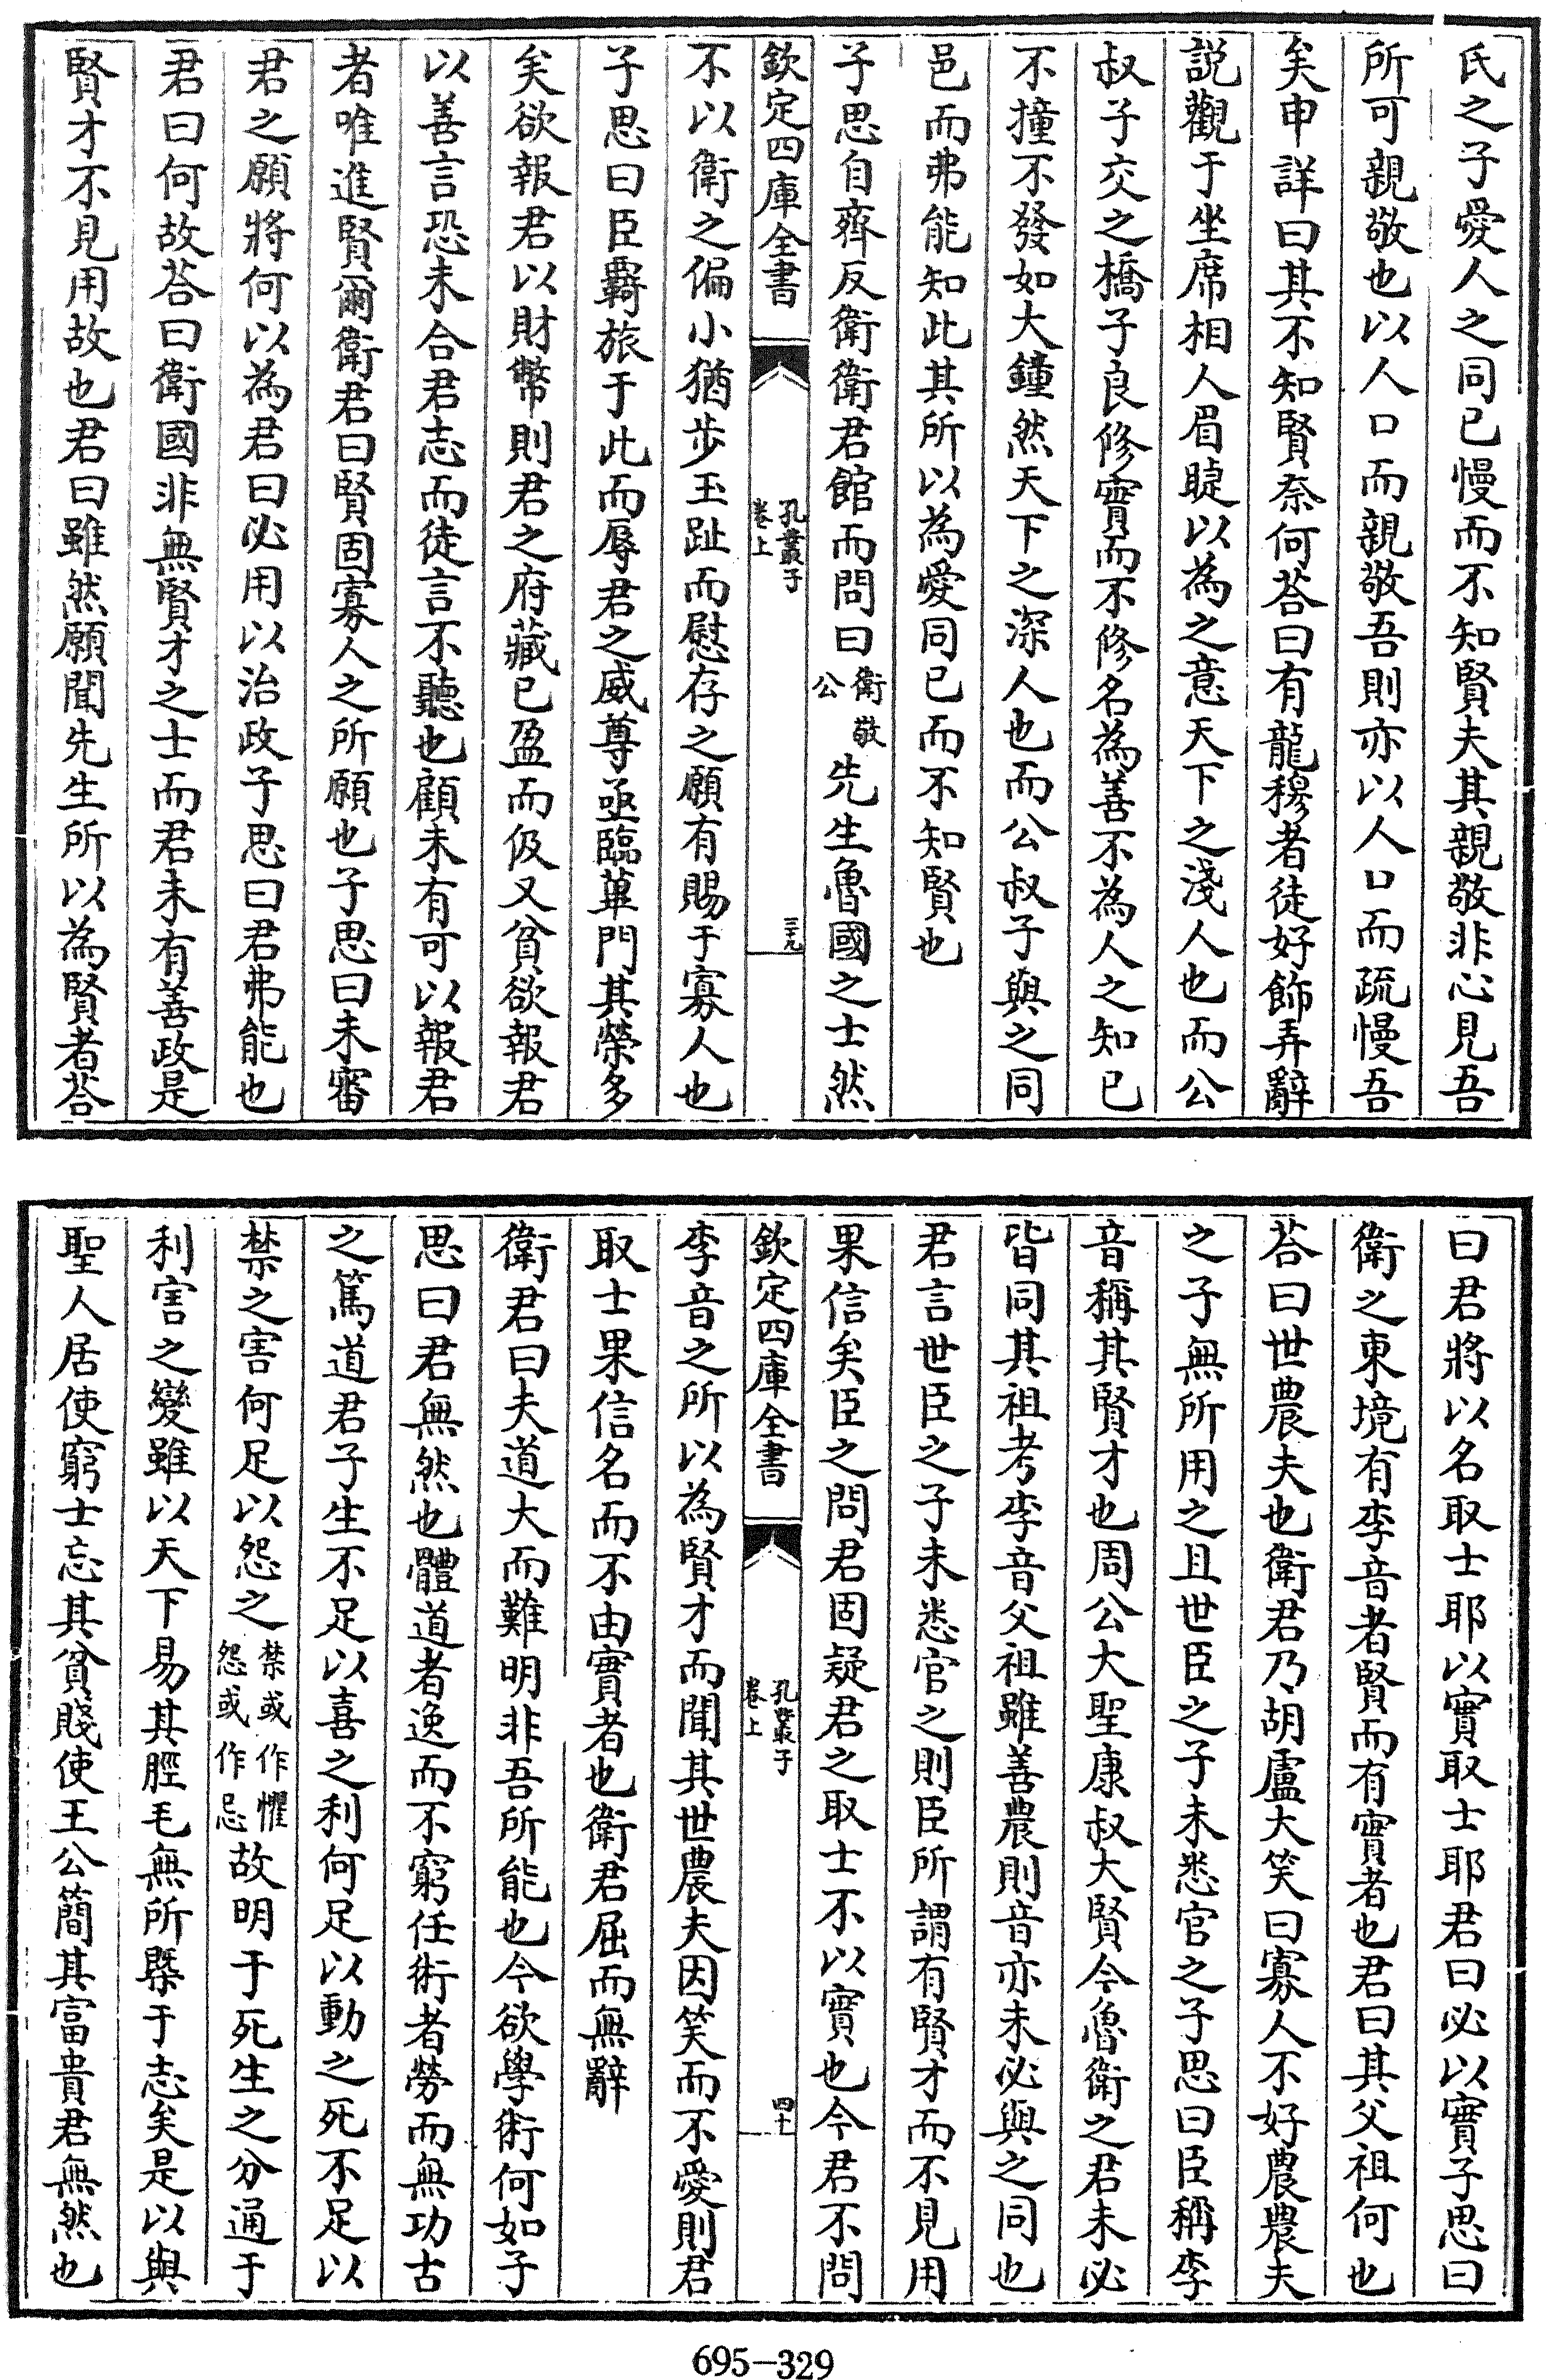 氏之子愛人之同已慢而不知賢夫其親敬非心見吾
所可親敬也以人口而親敬吾則亦以人口而疏慢吾
矣申詳曰其不知賢奈何荅曰有龍穆者徒好飾弄辭
說觀于坐席相人眉睫以為之意天下之淺人也而公
叔子交之橋子良修實而不修名為善不為人之知已
不撞不發如大鐘然天下之深人也而公叔子與之同
邑而弗能知此其所以為愛同已而不知賢也
子思自齊反衛衛君館而問曰衛敬公先生魯國之士然
欽定四庫全書 孔叢子卷上 三十九
不以衛之偏小猶步玉趾而慰存之願有賜于寡人也
子思曰臣羇旅于此而辱君之威尊亟臨蓽門其榮多
矣欲報君以財幣則君之府藏已盈而伋又貧欲報君
以善言恐未合君志而徒言不聽也顧未有可以報君
者唯進賢爾衛君曰賢固寡人之所願也子思曰未審
君之願將何以為君曰必用以治政子思曰君弗能也
君曰何故荅曰衛國非無賢才之士而君未有善政是
賢才不見用故也君曰雖然願聞先生所以為賢者荅
曰君將以名取士耶以實取士耶君曰必以實子思曰
衛之東境有李音者賢而有實者也君曰其父祖何也
荅曰世農夫也衛君乃胡盧大笑曰寡人不好農農夫
之子無所用之且世臣之子未悉官之子思曰臣稱李
音稱其賢才也周公大聖康叔大賢今魯衛之君未必
皆同其祖考李音父祖雖善農則音亦未必與之同也
君言世臣之子未悉官之則臣所謂有賢才而不見用
果信矣臣之問君固疑君之取士不以實也今君不問
欽定四庫全書 孔叢子卷上 四十
李音之所以為賢才而聞其世農夫因笑而不愛則君
取士果信名而不由實者也衛君屈而無辭
衛君曰夫道大而難明非吾所能也今欲學術何如子
思曰君無然也體道者逸而不窮任術者勞而無功古
之篤道君子生不足以喜之利何足以動之死不足以
禁之害何足以怨之禁或作懼怨或作忌故明于死生之分通于
利害之變雖以天下易其脛毛無所槩于志矣是以與
聖人居使窮士忘其貧賤使王公簡其富貴君無然也
695-329